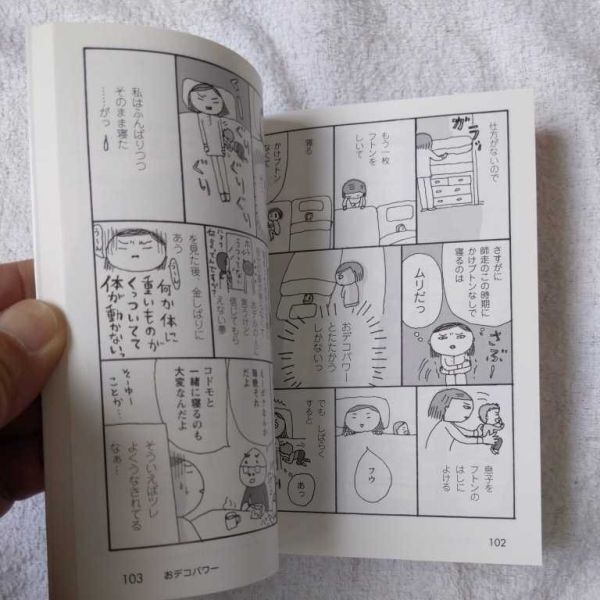 仕方がないので
ガラッ
もう一枚
フトンを
しいて
寝る
かけブトン
なくて
さすがに
師走のこの時期に
かけブトンなしで
寝るのは
ムリだっ
さぶ〜
おデコパワー
とたたかう
しかないっ
息子を
フトンの
はしに
よける
フウ
でも しばらく
すると
あっ
102
ぐり
ぐり
私はふんばりつつ
そのまま寝た
……がっ
信じてもら
えない夢
を見た後、金しばりに
あう
うーん
何か体に
重いものが
くっついてて
体が動かないっ
だよ
コドモと
一緒に寝るのも
大変なんだよ
そーゆー
ことか…
そういえばツレ
よくうなされてる
なぁ…
103
おデコパワー